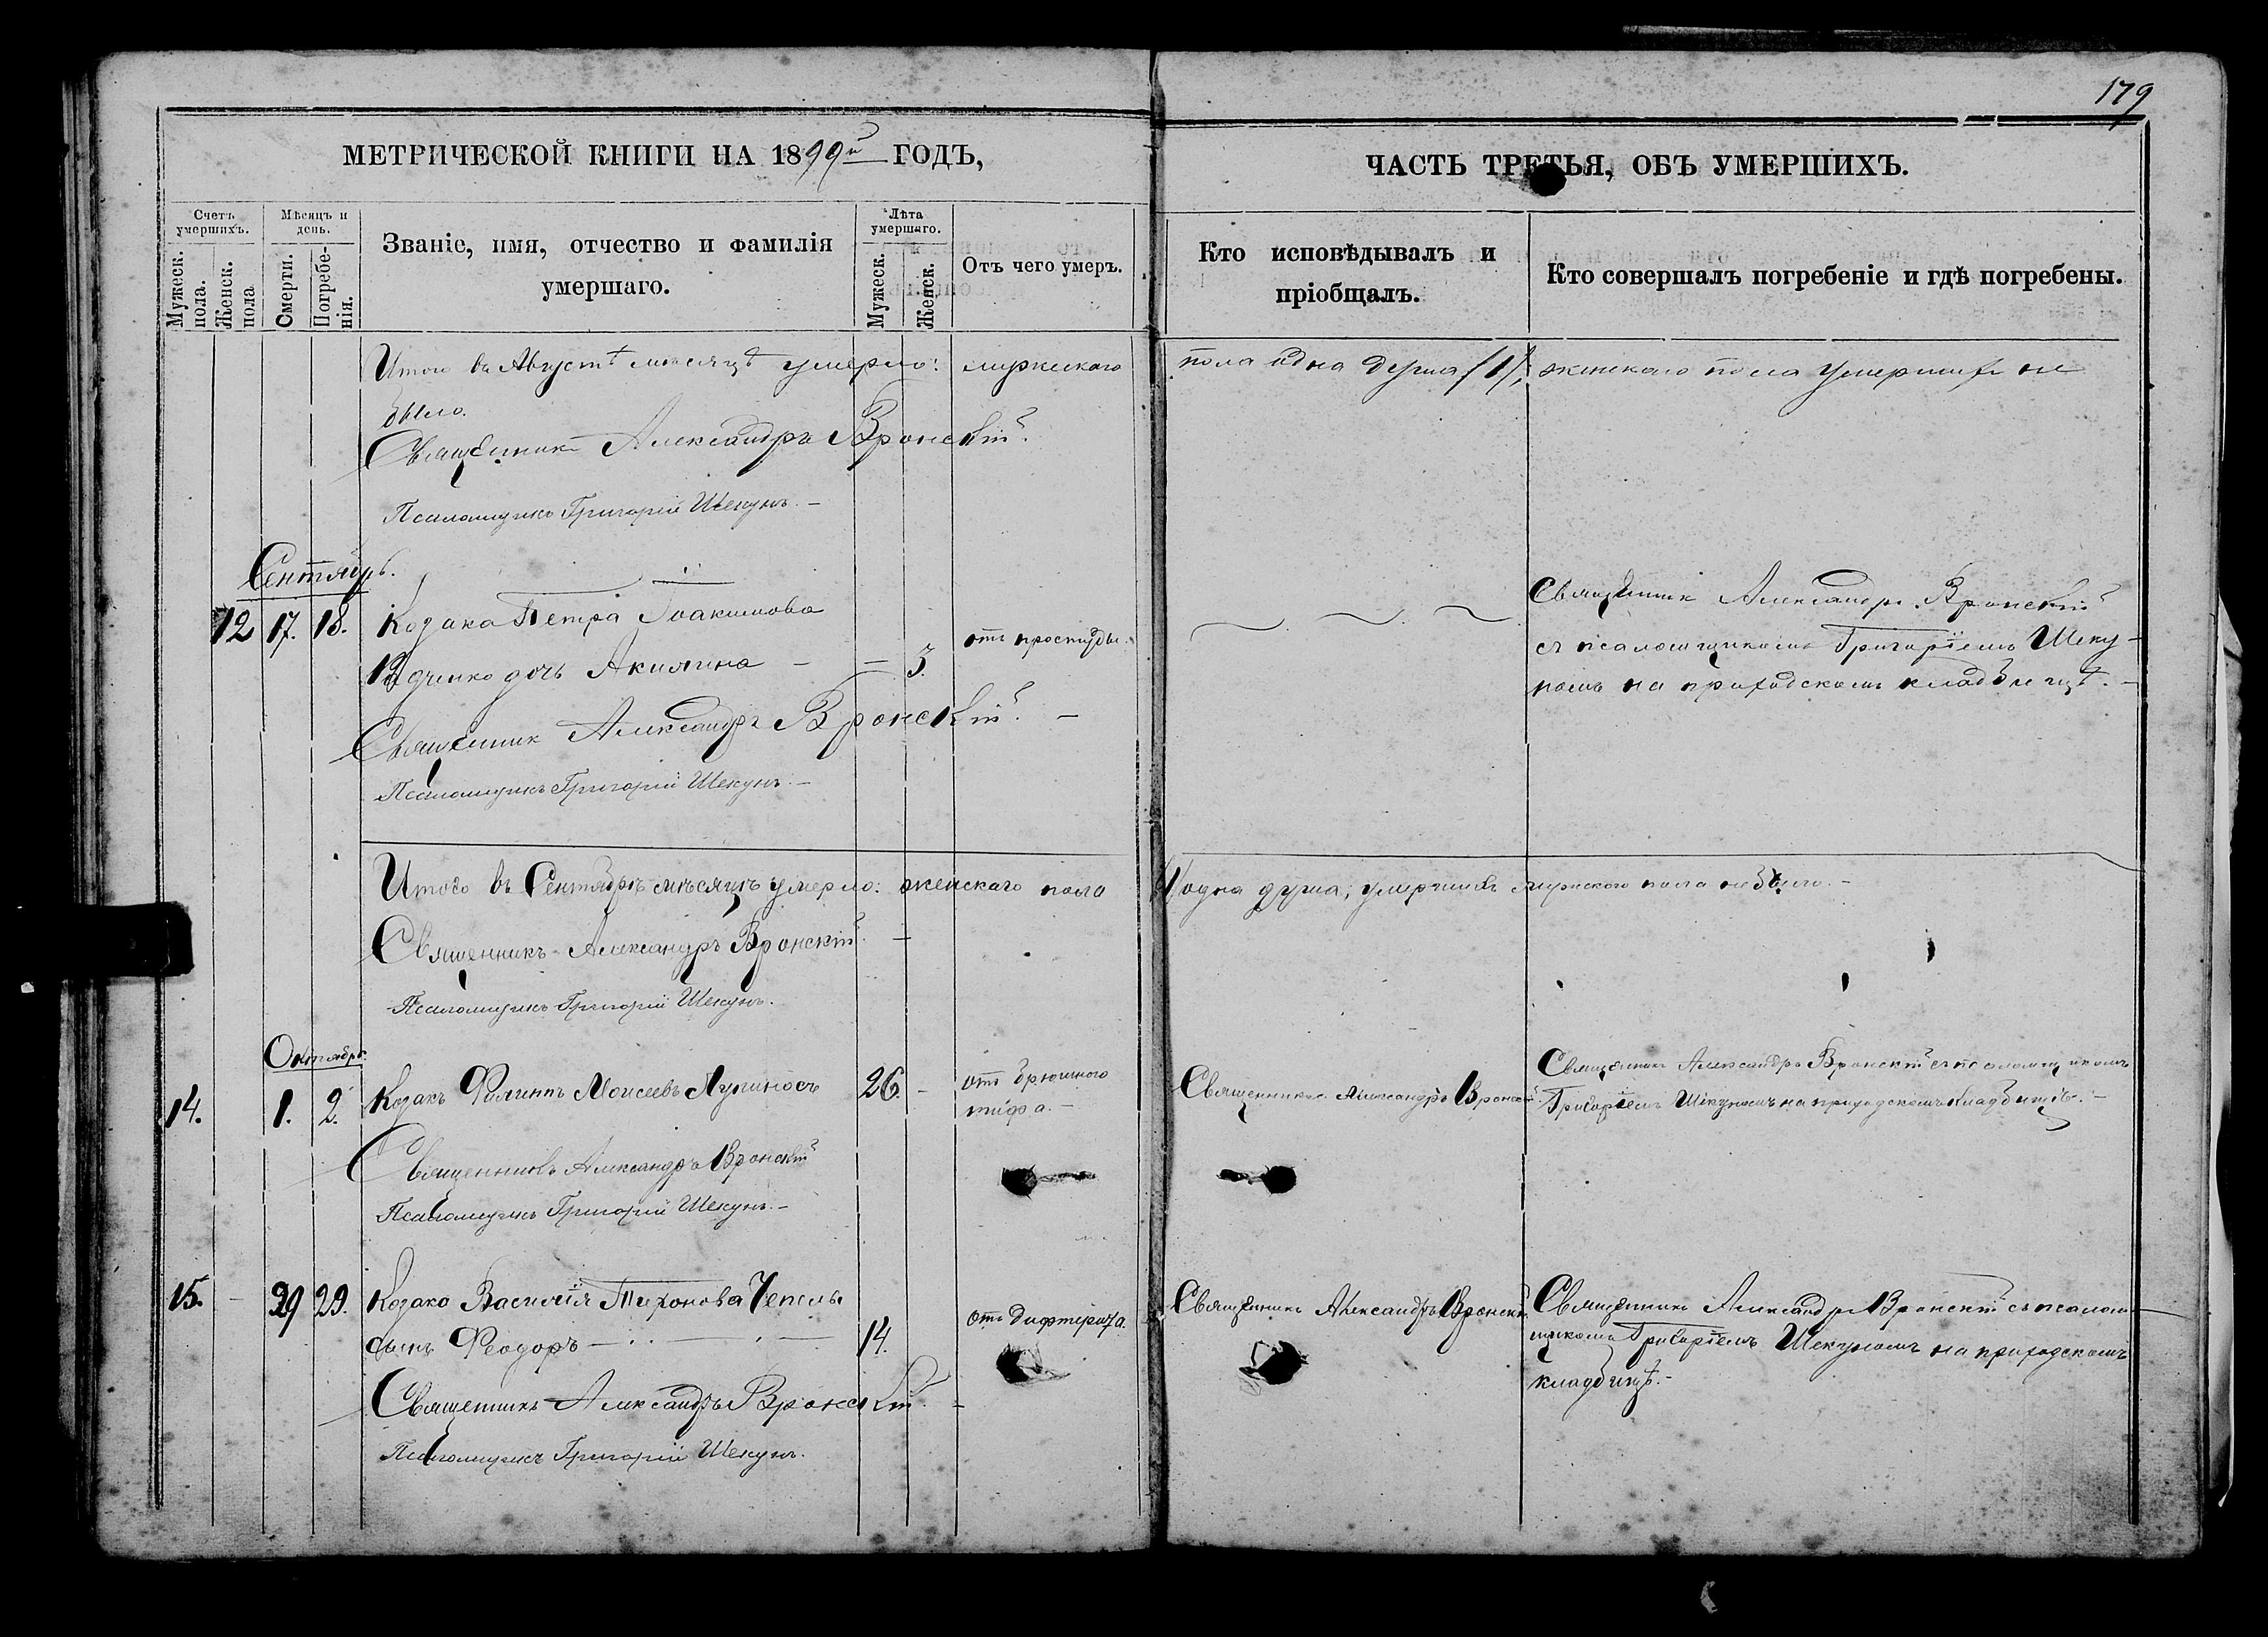 179
МЕТРИЧЕСКОЙ КНИГИ НА 1899й ГОДЪ,
ЧАСТЬ ТРЕТЬЯ, ОБЪ УМЕРШИХЪ.
Счетъ умершихъ.
Мужеск. пола.
Женск. пола
Мѣсяцъ и день.
Смерти.
Погребенія.
Званіе, имя, отчество и фамилія
умершаго.
Лѣта умершаго.
Мужеск.
Женск.
Отъ чего умеръ.
Кто исповѣдывалъ и
пріобщалъ.
Кто совершалъ погребеніе и гдѣ погребены.
Итого въ Августѣ мѣсяцѣ умерло: мужескаго пола одна душа /1/, женскаго пола умершихъ не
было.
Священникъ Александръ Вронскій.
Псаломщикъ Григорій Шекунъ. —
Сентябрь.
12 17. 18. Козака Петра Іоакимова
дочь Акилина — — 3.
отъ простуды.
Священникъ Александръ Вронскій
съ псаломщикомъ Григоріемъ Шеку-
номъ на приходскомъ кладбищѣ. —
Священникъ Александръ Вронскій. —
Псаломщикъ Григорій Шекунъ. —
Итого въ Сентябрѣ мѣсяцѣ умерло: женскаго пола /1/ одна душа; умершихъ мужского пола не было. —
Священникъ Александръ Вронскій. —
Псаломщикъ Григорій Шекунъ.
Октябрь.
14. 1. 2. Козакъ Филиппъ Моисеевъ Лупиносъ 26. —
отъ брюшного
тифа. —
Священникъ Александръ Вронскій.
Священникъ Александръ Вронскій съ псаломщикомъ
Григоріемъ Шекуномъ на приходскомъ кладбищѣ. —
Священникъ Александръ Вронскій
Псаломщикъ Григорій Шекунъ. —
15. — 29 29. Козака Василія Тихонова Чепелы
сынъ Феодоръ — 14.
отъ дифтерита.
Священникъ Александръ Вронскій
Священникъ Александръ Вронскій съ псалом-
щикомъ Григоріемъ Шекуномъ на приходскомъ
кладбищѣ. —
Священникъ Александръ Вронскій. —
Псаломщикъ Григорій Шекунъ.